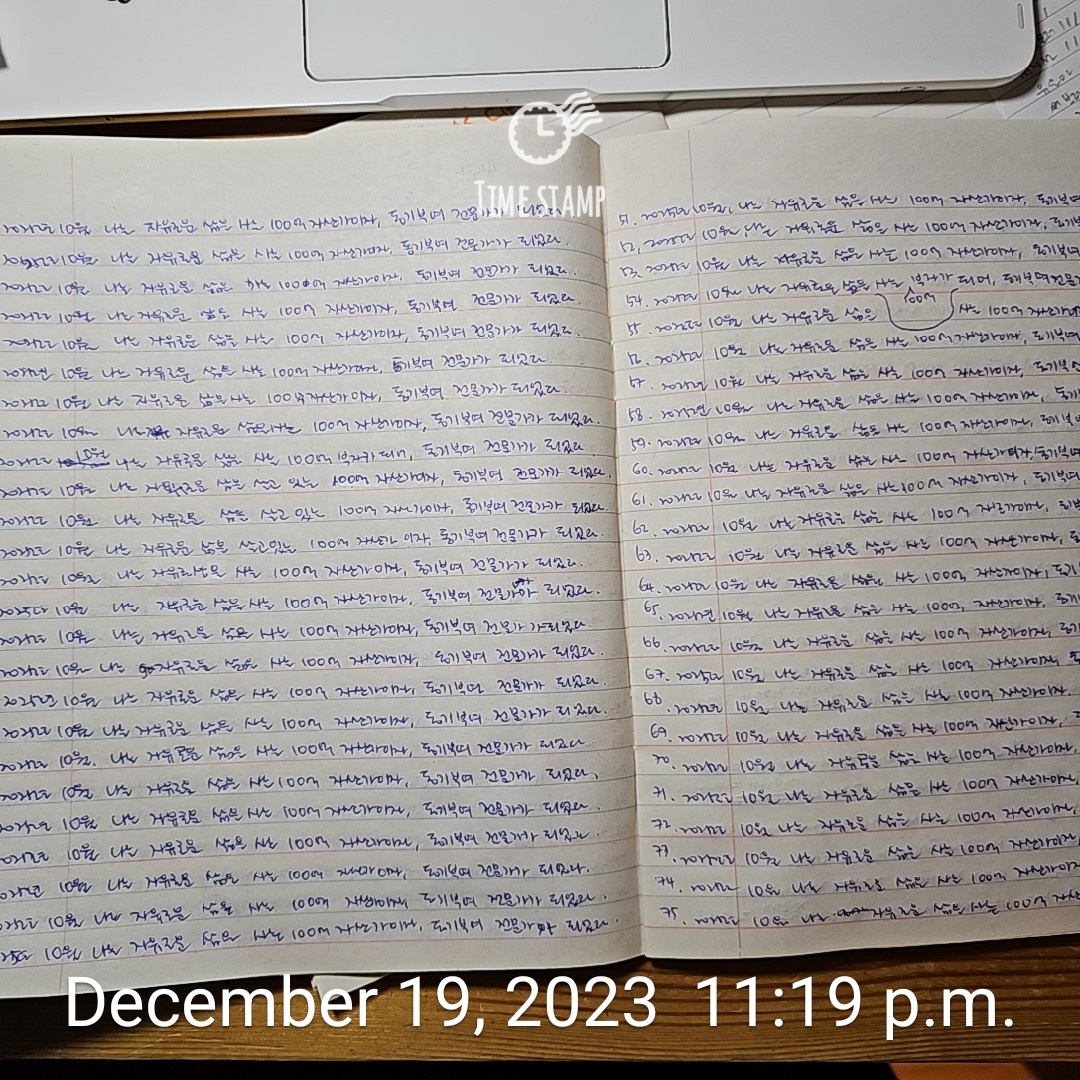 TIME STAMP
2025년 10월 나는 자유로운 삶을 사는 100억 자산가이자, 동기부여 전문가가 되었다.
2025년 10월 나는 자유로운 삶을 사는 100억 자산가이자, 동기부여 전문가가 되었다.
2025년 10월 나는 자유로운 삶을 사는 100억 자산가이자, 동기부여 전문가가 되었다.
2025년 10월 나는 자유로운 삶을 사는 100억 자산가이자, 동기부여 전문가가 되었다.
2025년 10월 나는 자유로운 삶을 사는 100억 자산가이자, 동기부여 전문가가 되었다.
2025년 10월 나는 자유로운 삶을 사는 100억 자산가이자, 동기부여 전문가가 되었다.
2025년 10월 나는 자유로운 삶을 사는 100억 자산가이자, 동기부여 전문가가 되었다.
2025년 10월 나는 자유로운 삶을 사는 100억 자산가이자, 동기부여 전문가가 되었다.
2025년 10월 나는 자유로운 삶을 사는 100억 부자가 되어, 동기부여 전문가가 되었다.
2025년 10월 나는 자유로운 삶을 살고 있는 100억 자산가이자, 동기부여 전문가가 되었다.
2025년 10월 나는 자유로운 삶을 살고 있는 100억 자산가이자, 동기부여 전문가가 되었다.
2025년 10월 나는 자유로운 삶을 살고있는 100억 자산가 이자, 동기부여 전문가가 되었다.
2025년 10월 나는 자유로운 삶을 사는 100억 자산가이자, 동기부여 전문가가 되었다.
2025년 10월 나는 자유로운 삶을 사는 100억 자산가이자, 동기부여 전문가가 되었다.
2025년 10월 나는 자유로운 삶을 사는 100억 자산가이자, 동기부여 전문가가 되었다.
2025년 10월 나는 자유로운 삶을 사는 100억 자산가이자, 동기부여 전문가가 되었다.
2025년 10월 나는 자유로운 삶을 사는 100억 자산가이자, 동기부여 전문가가 되었다.
2025년 10월 나는 자유로운 삶을 사는 100억 자산가이자, 동기부여 전문가가 되었다.
2025년 10월 나는 자유로운 삶을 사는 100억 자산가이자, 동기부여 전문가가 되었다.
2025년 10월 나는 자유로운 삶을 사는 100억 자산가이자, 동기부여 전문가가 되었다.
2025년 10월 나는 자유로운 삶을 사는 100억 자산가이자, 동기부여 전문가가 되었다.
2025년 10월 나는 자유로운 삶을 사는 100억 자산가이자, 동기부여 전문가가 되었다.
2025년 10월 나는 자유로운 삶을 사는 100억 자산가이자, 동기부여 전문가가 되었다.
2025년 10월 나는 자유로운 삶을 사는 100억 자산가이자, 동기부여 전문가가 되었다.
25년 10월 나는 자유로운 삶을 사는 100억 자산가이자, 동기부여 전문가가 되었다.
51. 2025년 10월, 나는 자유로운 삶을 사는 100억 자산가이자, 동기부여
52. 2025년 10월, 나는 자유로운 삶을 사는 100억 자산가이자, 동기부
53. 2025년 10월 나는 자유로운 삶을 사는 100억 자산가이자, 동기부여
54. 2025년 10월 나는 자유로운 삶을 사는 100억 부자가 되어, 동기부여 전문가
55. 2025년 10월 나는 자유로운 삶을 사는 100억 자산가이자
56. 2025년 10월 나는 자유로운 삶을 사는 100억 자산가이자, 동기부
57. 2025년 10월 나는 자유로운 삶을 사는 100억 자산가이자, 동기부여
58. 2025년 10월 나는 자유로운 삶을 사는 100억 자산가이자, 동기
59. 2025년 10월 나는 자유로운 삶을 사는 100억 자산가이자, 동기부여
60. 2025년 10월 나는 자유로운 삶을 사는 100억 자산가이자, 동기부여
61. 2025년 10월 나는 자유로운 삶을 사는 100억 자산가이자, 동기부여
62. 2025년 10월 나는 자유로운 삶을 사는 100억 자산가이자, 동기부
63. 2025년 10월 나는 자유로운 삶을 사는 100억 자산가이자, 동
64. 2025년 10월 나는 자유로운 삶을 사는 100억 자산가이자, 동기
65. 2025년 10월 나는 자유로운 삶을 사는 100억, 자산가이자, 동기
66. 2025년 10월 나는 자유로운 삶을 사는 100억 자산가이자, 동기
67. 2025년 10월 나는 자유로운 삶을 사는 100억 자산가이자, 동
68. 2025년 10월 나는 자유로운 삶을 사는 100억 자산가이자,
69. 2025년 10월 나는 자유로운 삶을 사는 100억 자산가이자,
70. 2025년 10월 나는 자유로운 삶을 사는 100억 자산가이자,
71. 2025년 10월 나는 자유로운 삶을 사는 100억 자산가이자,
72. 2025년 10월 나는 자유로운 삶을 사는 100억 자산가이자,
73. 2025년 10월 나는 자유로운 삶을 사는 100억 자산가이자,
74. 2025년 10월 나는 자유로운 삶을 사는 100억 자산가이자
75. 2025년 10월 나는 자유로운 삶을 사는 100억 자산
December 19, 2023 11:19 p.m.